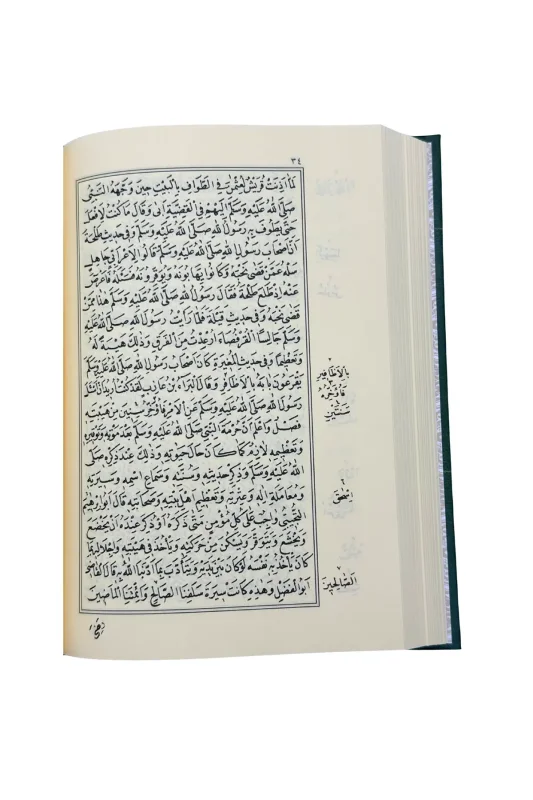 ٣٤
لَمَّا اَذِنَتْ قُرَيْشٌ لِعُثْمٰنَ فِى الطَّوَافِ بِالْبَيْتِ حِينَ وَجَّهَهُ النَّبِىُّ
صَلَّى اللهُ عَلَيْهِ وَسَلَّمَ اِلَيْهِمْ فِى الْقَضِيَّةِ اَبٰى وَقَالَ مَا كُنْتُ لِاَفْعَلَ
حَتّٰى يَطُوفَ بِهِ رَسُولُ اللهِ صَلَّى اللهُ عَلَيْهِ وَسَلَّمَ وَفِى حَدِيثِ طَلْحَةَ
اَنَّ اَصْحَابَ رَسُولِ اللهِ صَلَّى اللهُ عَلَيْهِ وَسَلَّمَ قَالُوا لِاَعْرَابِىٍّ جَاهِلٍ
سَلْهُ عَمَّنْ قَضٰى نَحْبَهُ وَكَانُوا يَهَابُونَهُ وَيُوَقِّرُونَهُ فَسَأَلَهُ فَاَعْرَضَ
عَنْهُ اِذْ طَلَعَ طَلْحَةُ فَقَالَ رَسُولُ اللهِ صَلَّى اللهُ عَلَيْهِ وَسَلَّمَ هٰذَا مِمَّنْ
قَضٰى نَحْبَهُ وَفِى حَدِيثِ قَيْلَةَ فَلَمَّا رَاَيْتُ رَسُولَ اللهِ صَلَّى اللهُ عَلَيْهِ
وَسَلَّمَ جَالِسًا الْقُرْفُصَاءَ اُرْعِدْتُ مِنَ الْفَرَقِ وَذٰلِكَ هَيْبَةً لَهُ
وَتَعْظِيمًا وَفِى حَدِيثِ الْمُغِيرَةِ كَانَ اَصْحَابُ رَسُولِ اللهِ صَلَّى اللهُ عَلَيْهِ وَسَلَّمَ
يَقْرَعُونَ بَابَهُ بِالْاَظَافِرِ وَقَالَ الْبَرَاءُ بْنُ عَازِبٍ لَقَدْ كُنْتُ اُرِيدُ اَنْ اَسْأَلَ
رَسُولَ اللهِ صَلَّى اللهُ عَلَيْهِ وَسَلَّمَ عَنِ الْاَمْرِ فَاُؤَخِّرُ سِنِينَ مِنْ هَيْبَتِهِ
فَصْلٌ وَاعْلَمْ اَنَّ حُرْمَةَ النَّبِىِّ صَلَّى اللهُ عَلَيْهِ وَسَلَّمَ بَعْدَ مَوْتِهِ وَتَوْقِيرَهُ
وَتَعْظِيمَهُ لَازِمٌ كَمَا كَانَ حَالَ حَيٰوتِهِ وَذٰلِكَ عِنْدَ ذِكْرِهِ صَلَّى
اللهُ عَلَيْهِ وَسَلَّمَ وَذِكْرِ حَدِيثِهِ وَسُنَّتِهِ وَسَمَاعِ اسْمِهِ وَسِيرَتِهِ
وَمُعَامَلَةِ اٰلِهِ وَعِتْرَتِهِ وَتَعْظِيمِ اَهْلِ بَيْتِهِ وَصَحَابَتِهِ قَالَ اَبُو اِبْرٰهِيمَ
التُّجِيبِىُّ وَاجِبٌ عَلٰى كُلِّ مُؤْمِنٍ مَتٰى ذَكَرَهُ اَوْ ذُكِرَ عِنْدَهُ اَنْ يَخْضَعَ
وَيَخْشَعَ وَيَتَوَقَّرَ وَيَسْكُنَ مِنْ حَرَكَتِهِ وَيَأْخُذَ فِى هَيْبَتِهِ وَاِجْلَالِهِ بِمَا
كَانَ يَأْخُذُ بِهِ نَفْسَهُ لَوْ كَانَ بَيْنَ يَدَيْهِ وَيَتَأَدَّبَ بِمَا اَدَّبَنَا اللهُ بِهِ قَالَ الْقَاضِى
اَبُو الْفَضْلِ وَهٰذِهِ كَانَتْ سِيرَةَ سَلَفِنَا الصَّالِحِ وَاَئِمَّتِنَا الْمَاضِينَ
بِالْاَظَافِيرِ
فَاُؤَخِّرُهُ
سَنَتَيْنِ
اِسْحٰقَ
الصَّالِحِينَ